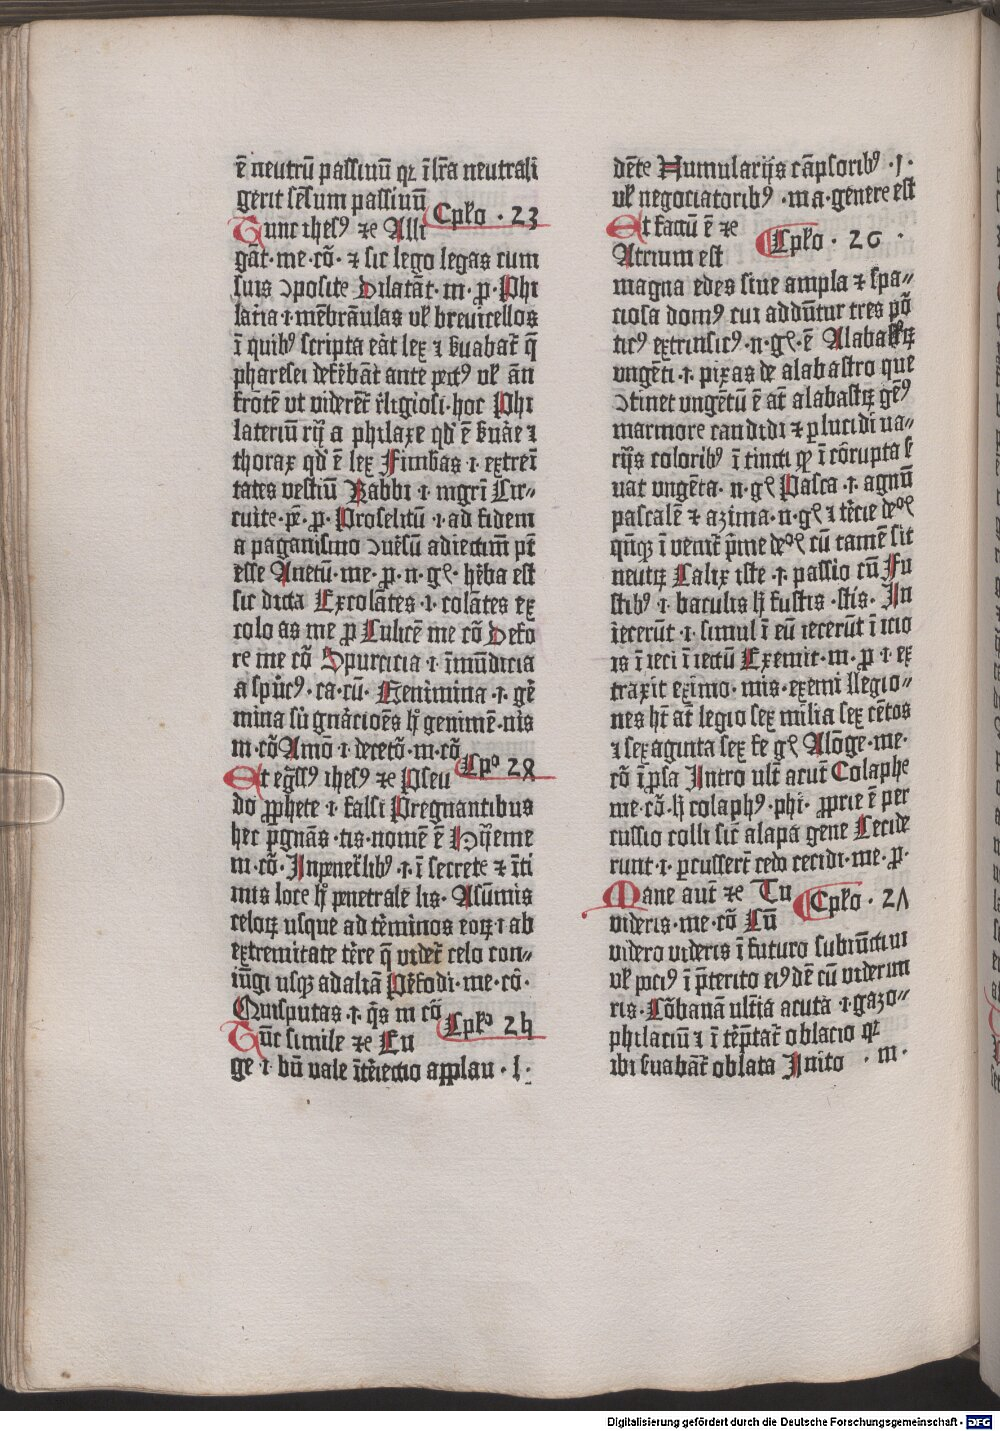 ē neutrū passiuū qꝛ ī lr̄a neutrali
gerit sēsum passiuū
Cpl̄o · 23
Tunc ihesꝰ ⁊c Alli
gāt · me · cō · ⁊ sic lego legas cum
suis ꝯposite Dilatāt · m · p̄ · Phi
lat̄ia · i · mēbrāulas vl̄ breuicellos
ī quibꝰ scripta eāt lex ⁊ ẜuabāt q̄
pharesei defēbāt ante pectꝰ vl̄ ān
frōtē vt viderēt r̄ligiosi · hoc Phi
lateriū rij a philaxe qd̄ ē ẜuāe ⁊
thorax qd̄ ē lex Fimbas · i · extreī
tates vestiū Rabbi · i · mgr̄i Cir⸗
cuite · pē · p̄ · Proselitū · i · ad fidem
a paganismo ꝯuersū adiectiū pt̄
esse Anetū · me · p̄ · n · gꝭ · hēba est
sic dicta Excolātes · i · colātes ex
colo as me p̄ Culicē me cō Defo
re me cō Spurcicia · i · īmūdicia
a spūcꝰ · ca · cū · Genimina · i · gē
mina sū gnācioēs hꝫ genimē · nis
m · cō Amō · i · decetō · m · cō
Cpᵒ 28
Et egr̄sꝰ ihesꝰ ⁊c Pseu
do ꝓphete · i · falsi Pregnantibus
hec p̄gnās · tis · nomē ē Hyeme
m · cō · Inpenetr̄libꝰ · i · ī secrete ⁊ īti
mis loce hꝫ penetrale lis · A sūmis
celoꝝ usque ad tēminos eoꝝ · i · ab
extremitate tēre q̄ videt̄ celo con⸗
iūgi usqꝫ ad aliā Pēfodi · me · cō ·
Quisputas · i · q̄s m cō
Cpl̄o 24
Tūc simile ⁊c Eu
ge · i · bn̄ vale ītēiectio applau · l ·
dēte Numularijs cāpsoribꝰ · i ·
vl̄ negociatoribꝰ · ma · genere est
Et factū ē ⁊c
Cpl̄o · 26 ·
Atrium est
magna edes siue ampla ⁊ spa⸗
ciosa domꝰ cui addūtur tres pō
ticꝰ extrinsicꝰ · n · gꝭ · ē Alabastꝝ
vngēti · i · pixas de alabastro que
ꝯtinet vngētū ē at̄ alabastꝝ gēꝰ
marmore candidi ⁊ plucidi ua⸗
rijs coloribꝰ ī tincti qd̄ ī cōrupta ẜ
uat vngēta · n · gꝭ Pasca · i · agnū
pascalē ⁊ azima · n · gꝭ ⁊ tēcie deᵒꝭ
qūqꝫ ī venit̄ p̄me deᵒꝭ cū tamē sit
neutꝝ Calix iste · i · passio cū Fu
stibꝰ · i · baculis hꝫ fustis · stis · In
iecerūt · i · simul ī eū iecerūt ī icio
is ī ieci ī iectū Exemit · m · p̄ · i · ex
traxit eximo · mis · exemi Legio⸗
nes ht̄ at̄ legio sex milia sex cētos
⁊ sexaginta sex fe gꝭ Alōge · me ·
cō ī p̄sa Intro ult̄ acut̄ Colaphe
me · cō · hꝫ colaphꝰ · phi · ꝓprie ē per
cussio colli sic̄ alapa gene Cecide
runt · i · pcussert̄ cedo cecidi · me · p̄ ·
Mane aut̄ ⁊c Tu
Cpl̄o · 27
videris · me · cō Cū
videro videris ī futuro subiūctiui
vl̄ pociꝰ ī p̄terito eiꝰdē cū viderim
ris · Cōbanā ult̄iā acuta · i · gazo⸗
philāciū ⁊ ī tēptat̄ oblacio qꝛ
ibi ẜuabāt̄ oblata Inito · m ·
Digitalisierung gefördert durch die Deutsche Forschungsgemeinschaft - DFG